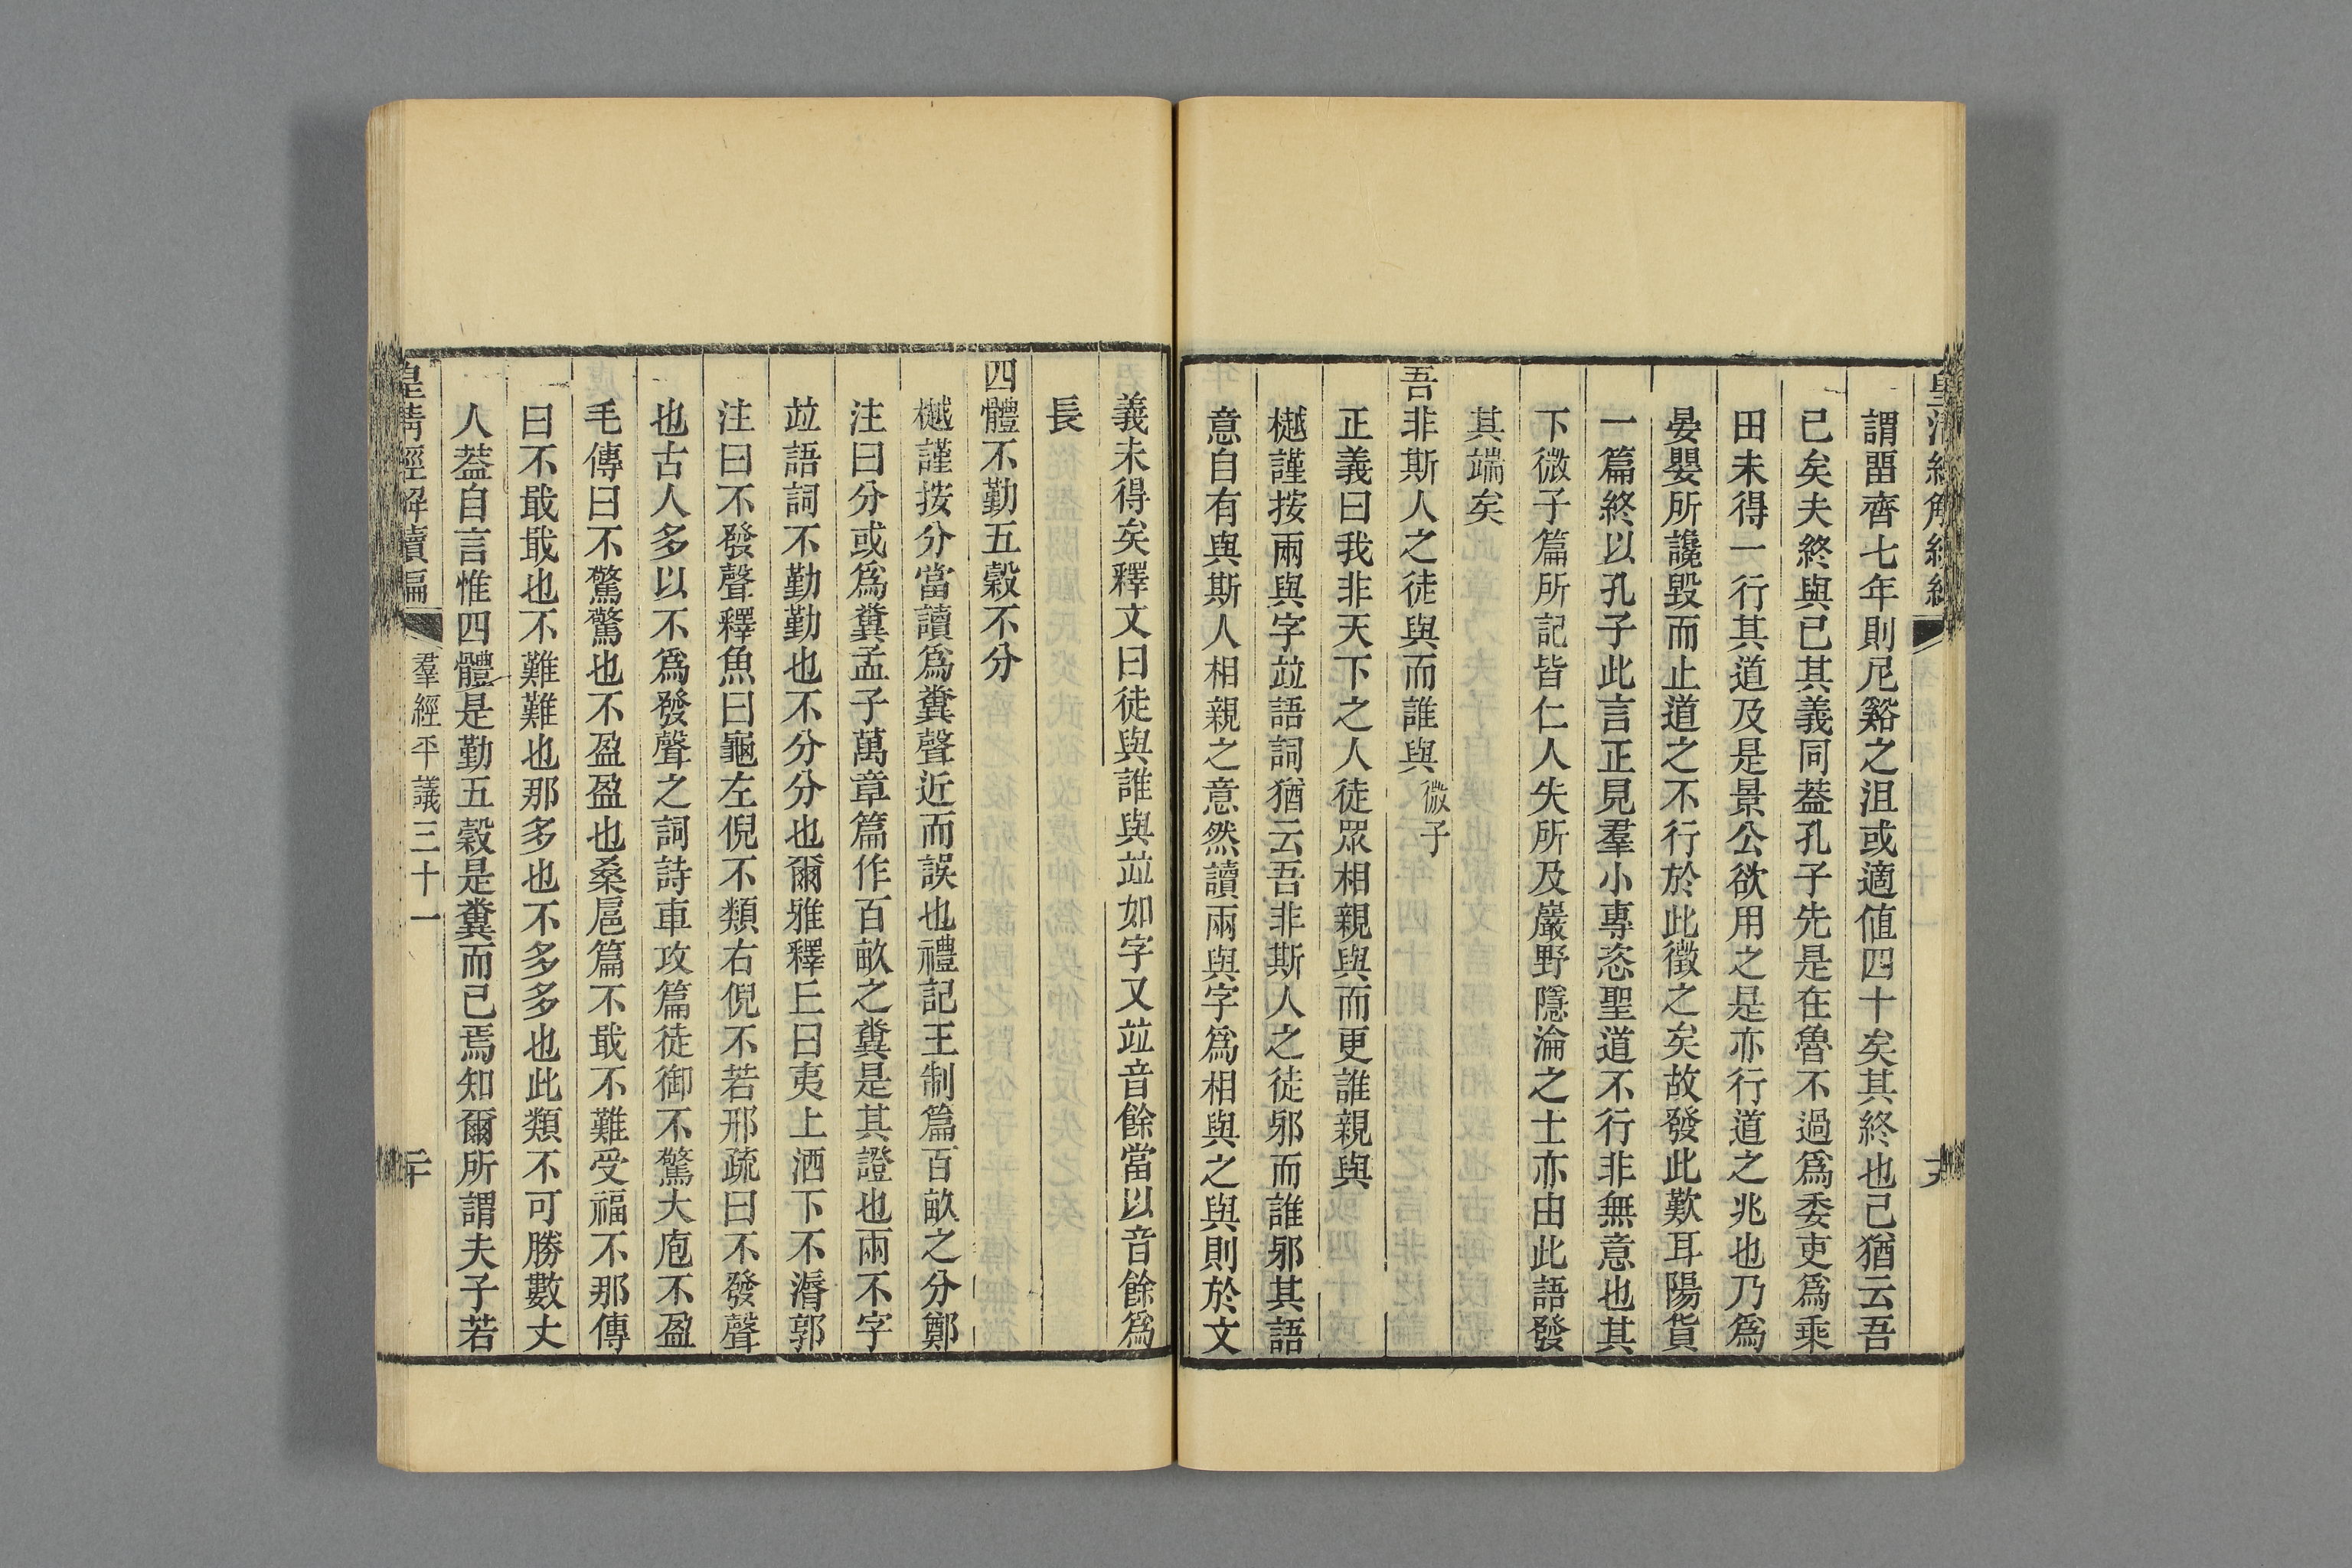 謂畱齊七年則尼谿之沮或適値四十矣其終也己猶云吾
已矣夫終與已其義同葢孔子先是在魯不過爲委吏爲乘
田未得一行其道及是景公欲用之是亦行道之兆也乃爲
晏嬰所讒毀而止道之不行於此徵之矣故發此歎耳陽貨
一篇終以孔子此言正見羣小專恣聖道不行非無意也其
下微子篇所記皆仁人失所及巖野隱淪之士亦由此語發
其端矣
吾非斯人之徒與而誰與微子
正義曰我非天下之人徒眾相親與而更誰親與
樾謹按兩與字竝語詞猶云吾非斯人之徒邪而誰邪其語
意自有與斯人相親之意然讀兩與字爲相與之與則於文
義未得矣釋文曰徒與誰與竝如字又竝音餘當以音餘爲
長
四體不勤五穀不分
樾謹按分當讀爲糞聲近而誤也禮記王制篇百畝之分鄭
注曰分或爲糞孟子萬章篇作百畝之糞是其證也兩不字
竝語詞不勤勤也不分分也爾雅釋丘曰夷上洒下不漘郭
注曰不發聲釋魚曰龜左倪不類右倪不若邢疏曰不發聲
也古人多以不爲發聲之詞詩車攻篇徒御不驚大庖不盈
毛傳曰不驚驚也不盈盈也桑扈篇不戢不難受福不那傳
曰不戢戢也不難難也那多也不多多也此類不可勝數丈
人葢自言惟四體是勤五穀是糞而已焉知爾所謂夫子若
皇清經解續編
羣經平議三十一